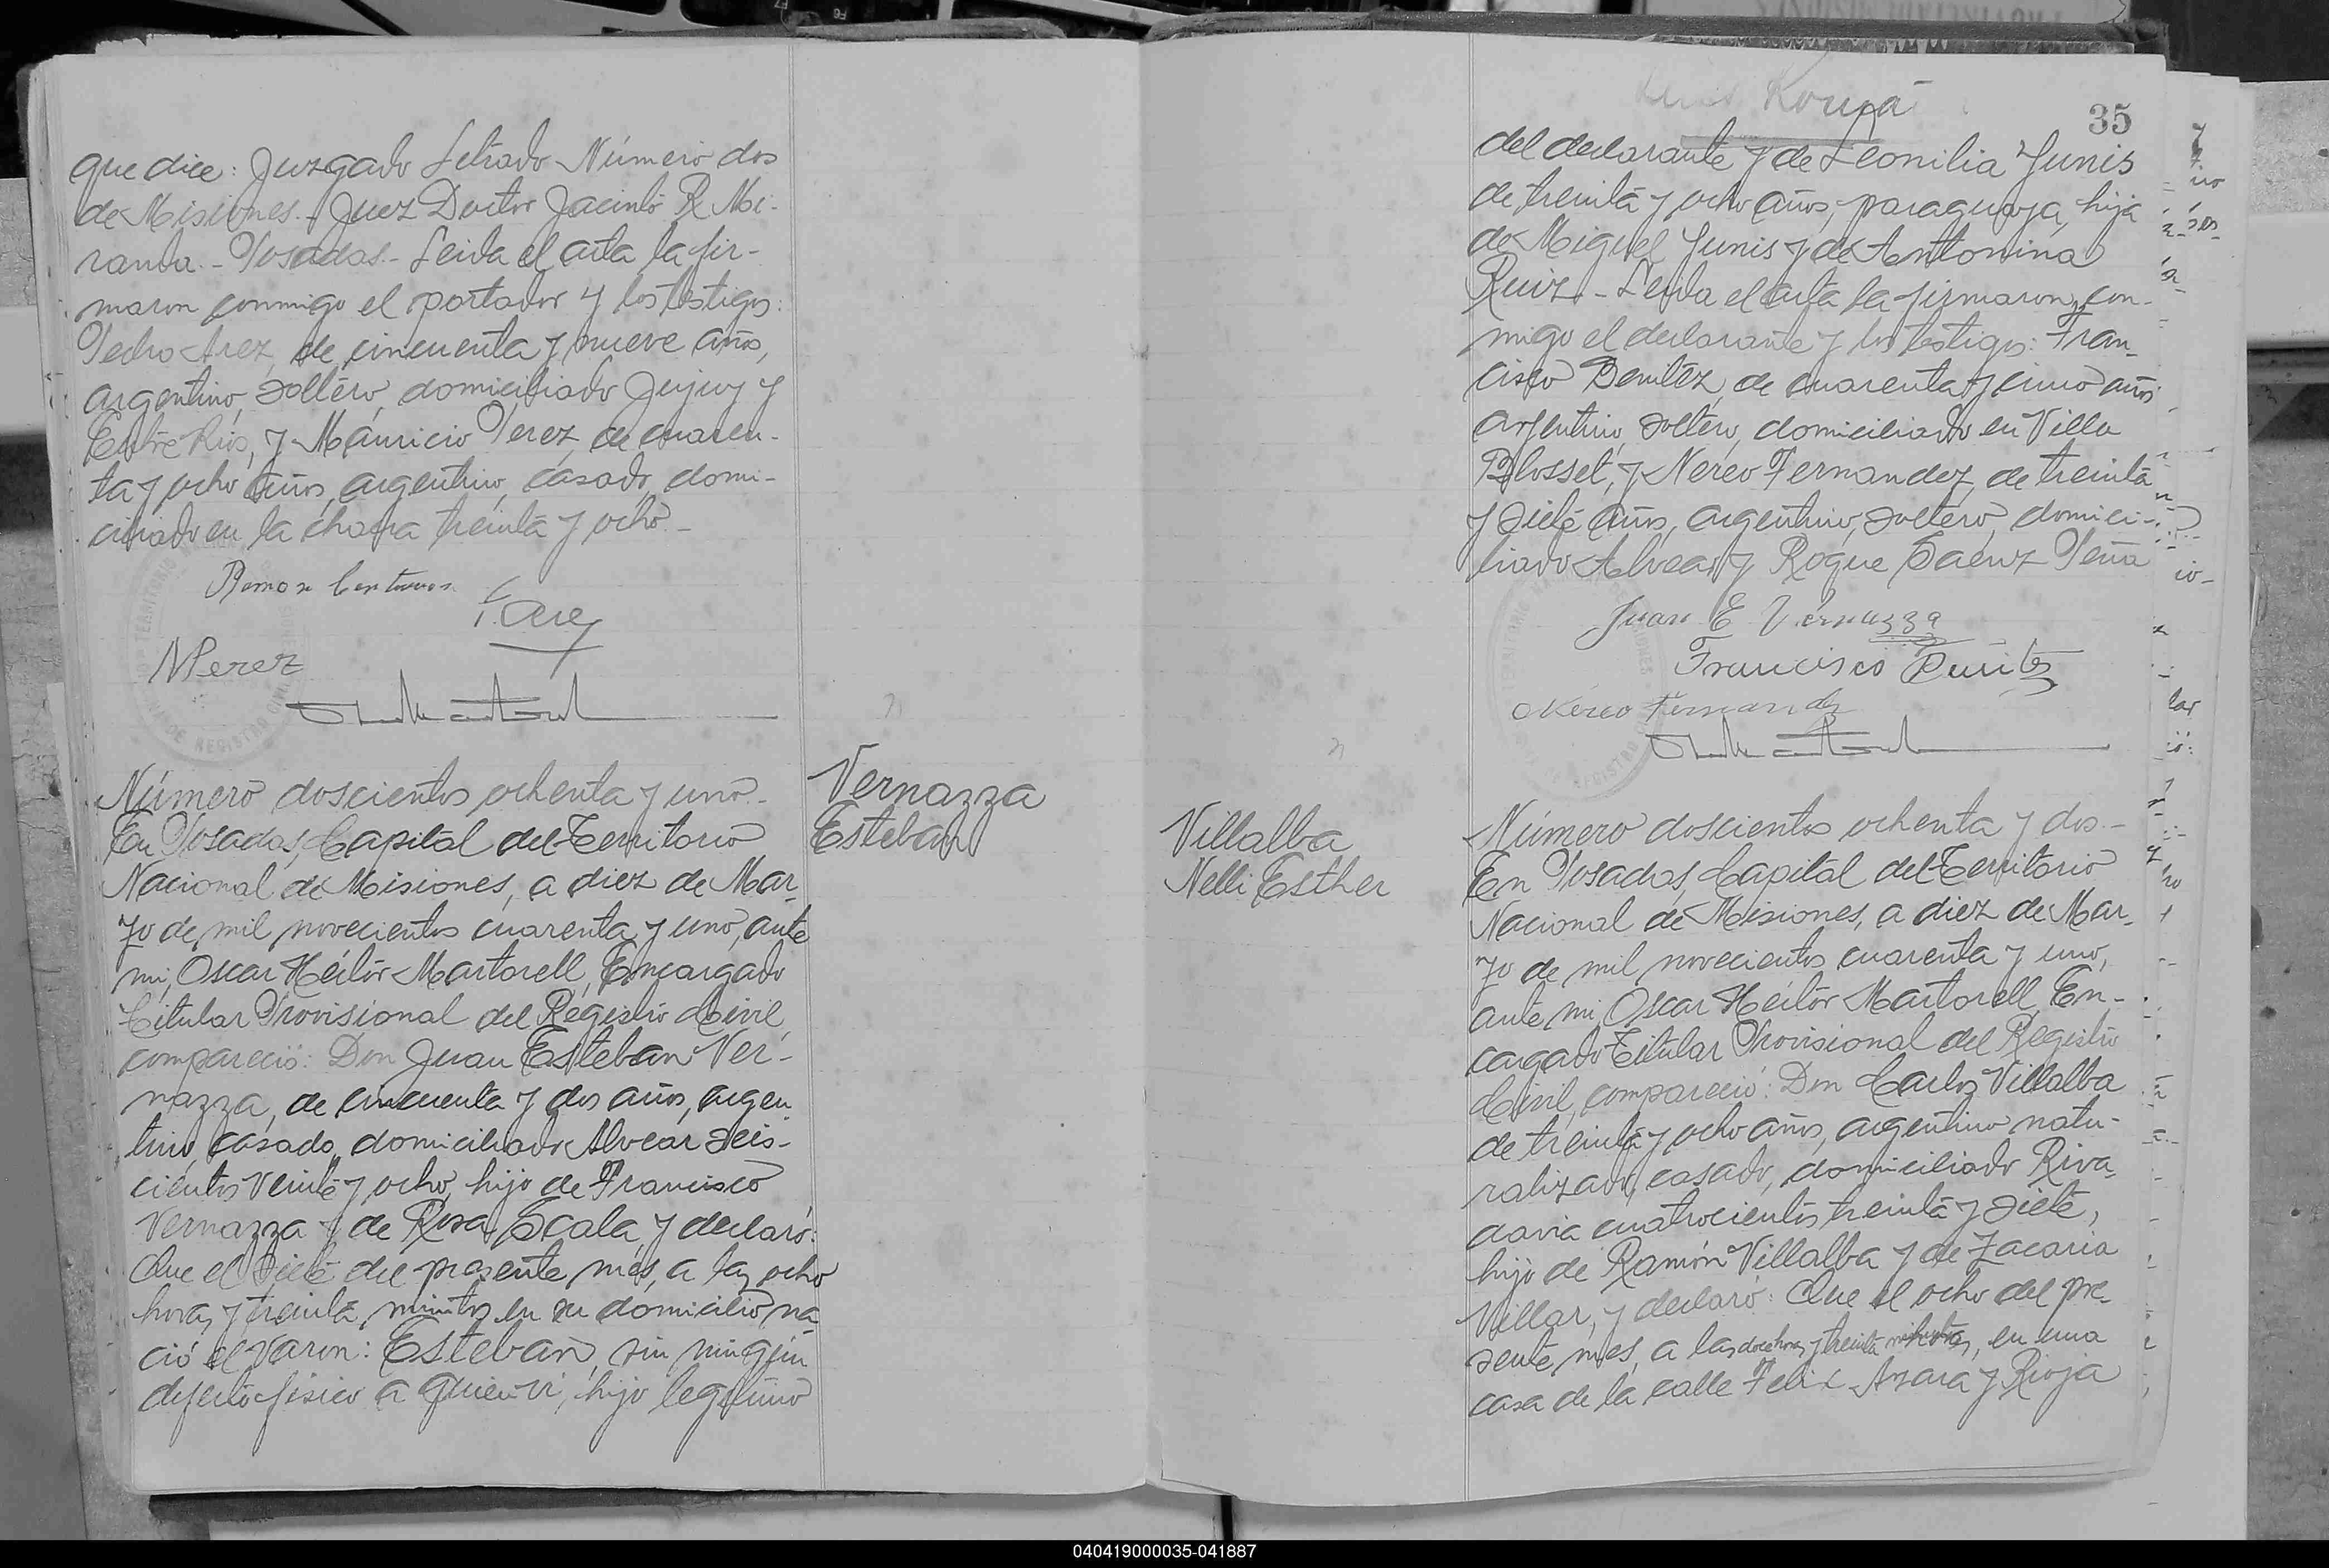 que dice: Juzgado Letrado Número dos
de Misiones.- Juez Doctor Jacinto R Mi-
randa.- Posadas.- Leida el acta la fir-
maron conmigo el portador y los testigos:
Pedro Arez, de cincuenta y nueve años,
argentino, soltero, domiciliado Jujuy y
Entre Rios, y Mauricio Perez, de cuaren-
ta y ocho años, argentino, casado, domi-
ciliado en la chacra treinta y ocho.-
Ramon
P. Arez
MPerez
Número doscientos ochenta y uno.-
En Posadas, Capital del Territorio
Nacional de Misiones, a diez de Mar-
zo de mil novecientos cuarenta y uno, ante
mi, Oscar Héctor Martorell, Encargado
Titular Provisional del Registro Civil,
compareció: Don Juan Esteban Ver-
nazza, de cincuenta y dos años, argen
tino, casado, domiciliado Alvear seis-
cientos veinte y ocho, hijo de Francisco
Vernazza y de Rosa Scala, y declaró:
Que el siete del presente mes, a las ocho
horas y treinta minutos en su domicilio na
ció el varon: Esteban, sin ningún
defecto físico a quien vi, hijo legítimo
Vernazza
Esteban
Villalba
Nelli Esther
35
del declarante y de Leonilia Yunis
de treinta y ocho años, paraguaya, hija
de Miguel Yunis y de Antonina
Ruiz.- Leida el acta la firmaron con-
migo el declarante y los testigos: Fran-
cisco Benitez, de cuarenta y cinco años
argentino, soltero, domiciliado en Villa
Blosset, y Nereo Fernandez, de treinta
y siete años, argentino, soltero, domici-
liado Alvear y Roque Saenz Peña
Juan E Vernazza
Francisco Benites
Nereo Fernandez
Número doscientos ochenta y dos.-
En Posadas, Capital del Territorio
Nacional de Misiones, a diez de Mar-
zo de mil novecientos cuarenta y uno,
ante mi, Oscar Héctor Martorell, En-
cargado Titular Provisional del Registro
Civil, compareció: Don Carlos Villalba
de treinta y ocho años, argentino natu-
ralizado, casado, domiciliado Riva-
davia cuatrocientos treinta y siete,
hijo de Ramón Villalba y de Zacaria
Villar, y declaró: Que el ocho del pre-
sente mes, a las doce horas y treinta minutos, en una
casa de la calle Felix Azara y Rioja
040419000035-041887